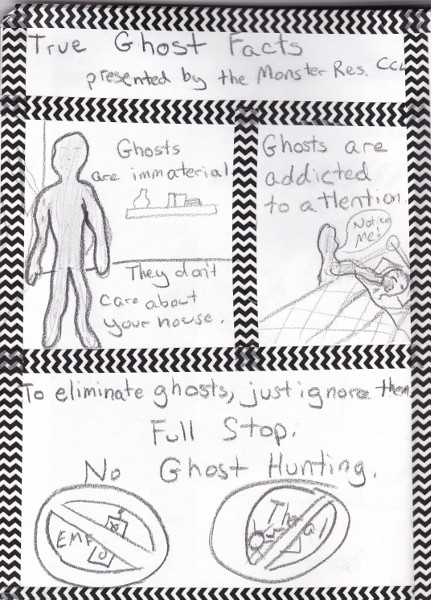 True Ghost Facts
presented by the Monster Res.
Ghosts
are immaterial
They don't
care about
your house.
Ghosts are
addicted
to attention.
Notice
Me!
To eliminate ghosts, just ignore them
Full Stop.
No Ghost Hunting.
EMF